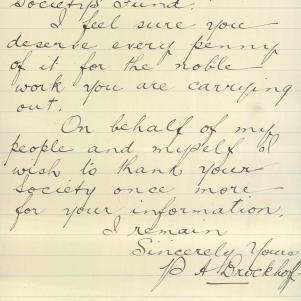 Society's Fund.
I feel sure you
deserve every penny
of it for the noble
work you are carrying
out.
On behalf of my
people and myself I
wish to thank your
society once more
for your information.
I remain
Sincerely Yours
P A Brockhof